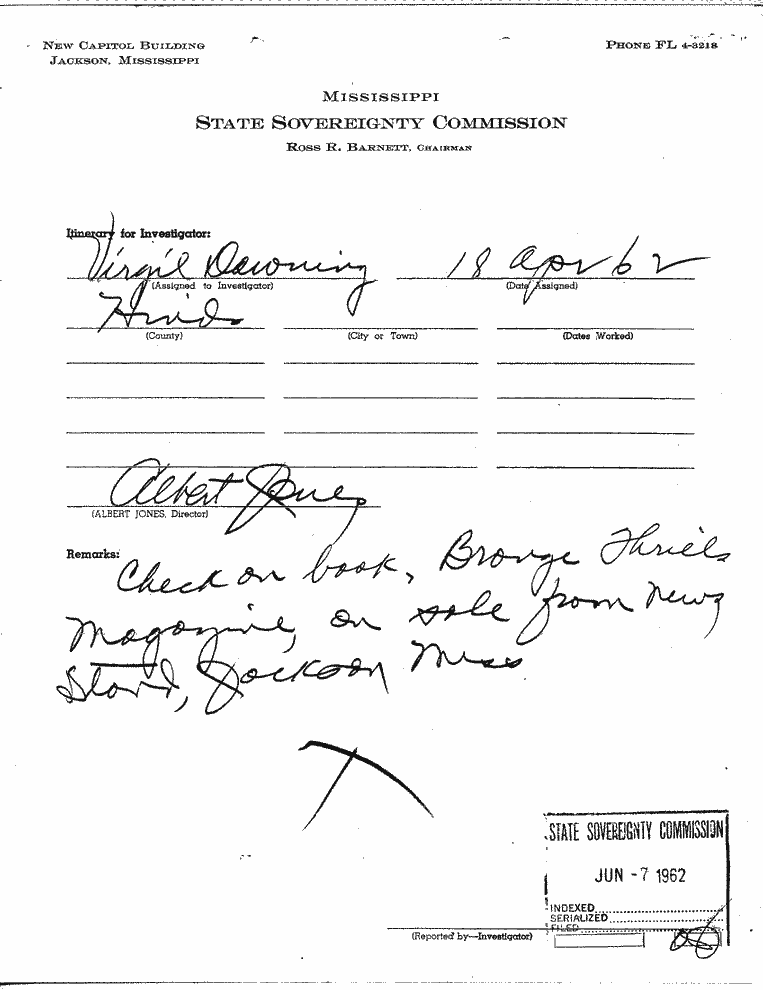 NEW CAPITOL BUILDING
JACKSON, MISSISSIPPI
PHONE FL 4-3218
MISSISSIPPI
STATE SOVEREIGNTY COMMISSION
ROSS R. BARNETT, CHAIRMAN
Itinerary for Investigator:
Virgil Downing 18 Apr 62
(Assigned to Investigator) (Date Assigned)
Hinds
(County) (City or Town) (Dates Worked)
Albert Jones
(ALBERT JONES, Director)
Remarks:
Check on book, Bronze Thrills
Magazine, on sale from News
Stand, Jackson Miss
STATE SOVEREIGNTY COMMISSION
JUN -7 1962
INDEXED
SERIALIZED
FILED
(Reported by—Investigator)